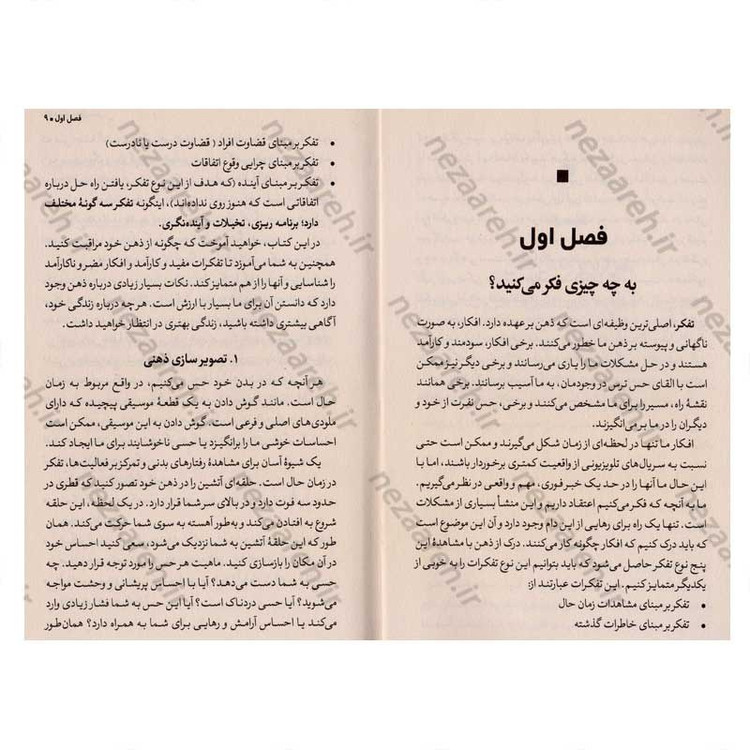 فصل اول
به چه چیزی فکر می‌کنید؟
تفکر، اصلی‌ترین وظیفه‌ای است که ذهن بر عهده دارد. افکار، به صورت
ناگهانی و پیوسته بر ذهن ما خطور می‌کنند. برخی افکار، سودمند و کارآمد
هستند و در حل مشکلات ما را یاری می‌رسانند و برخی دیگر نیز ممکن
است با القای حس ترس در وجودمان، به ما آسیب برسانند. برخی همانند
نقشهٔ راه، مسیر را برای ما مشخص می‌کنند و برخی، حس نفرت از خود و
دیگران را در ما بر می‌انگیزند.
افکار ما تنها در لحظه‌ای از زمان شکل می‌گیرند و ممکن است حتی
نسبت به سریال‌های تلویزیونی از واقعیت کمتری برخوردار باشند، اما با
این حال ما آنها را در حد یک خبر فوری، مهم و واقعی در نظر می‌گیریم.
ما به آنچه که فکر می‌کنیم اعتقاد داریم و این منشأ بسیاری از مشکلات
ما است. تنها یک راه برای رهایی از این دام وجود دارد و آن این موضوع است
که باید درک کنیم که افکار چگونه کار می‌کنند. درک از ذهن با مشاهدهٔ این
پنج نوع تفکر حاصل می‌شود که باید بتوانیم این نوع تفکرات را به خوبی از
یکدیگر متمایز کنیم. این تفکرات عبارتند از:
• تفکر بر مبنای مشاهدات زمان حال
• تفکر بر مبنای خاطرات گذشته
فصل اول ■ ۹
• تفکر بر مبنای قضاوت افراد (قضاوت درست یا نادرست)
• تفکر بر مبنای چرایی وقوع اتفاقات
• تفکر بر مبنای آینده (که هدف از این نوع تفکر، یافتن راه حل درباره
اتفاقاتی است که هنوز روی نداده‌اند)، اینگونه تفکر سه گونهٔ مختلف
دارد؛ برنامه ریزی، تخیلات و آینده‌نگری.
در این کتاب، خواهید آموخت که چگونه از ذهن خود مراقبت کنید.
همچنین به شما می‌آموزد تا تفکرات مفید و کارآمد و افکار مضر و ناکارآمد
را شناسایی و آنها را از هم متمایز کند. نکات بسیار زیادی درباره ذهن وجود
دارد که دانستن آن برای ما بسیار با ارزش است. هر چه درباره زندگی خود،
آگاهی بیشتری داشته باشید، زندگی بهتری در انتظار خواهید داشت.
۱. تصویر سازی ذهنی
هر آنچه که در بدن خود حس می‌کنیم، در واقع مربوط به زمان
حال است. مانند گوش دادن به یک قطعهٔ موسیقی پیچیده که دارای
ملودی‌های اصلی و فرعی است. گوش دادن به این موسیقی، ممکن است
احساسات خوشی ما را برانگیزد یا حسی ناخوشایند برای ما ایجاد کند.
یک شیوهٔ آسان برای مشاهدهٔ رفتارهای بدنی و تمرکز بر فعالیت‌ها، تفکر
کردن است. حلقه‌ای آتشین را در ذهن خود تصور کنید که قطری در
حدود سه فوت دارد و در بالای سر شما قرار دارد. در یک لحظه، این حلقه
شروع به افتادن می‌کند و به‌طور آهسته به سوی شما حرکت می‌کند. همان
طور که این حلقهٔ آتشین به شما نزدیک می‌شود، سعی کنید احساس خود
در آن مکان را بازسازی کنید. ماهیت هر حس را مورد توجه قرار دهید. چه
حسی به شما دست می‌دهد؟ آیا با احساس پریشانی و وحشت مواجه
می‌شوید؟ آیا حسی دردناک است؟ آیا این حس به شما فشار زیادی وارد
می‌کند یا احساس آرامش و رهایی برای شما به همراه دارد؟ همان‌طور
nezaareh.ir